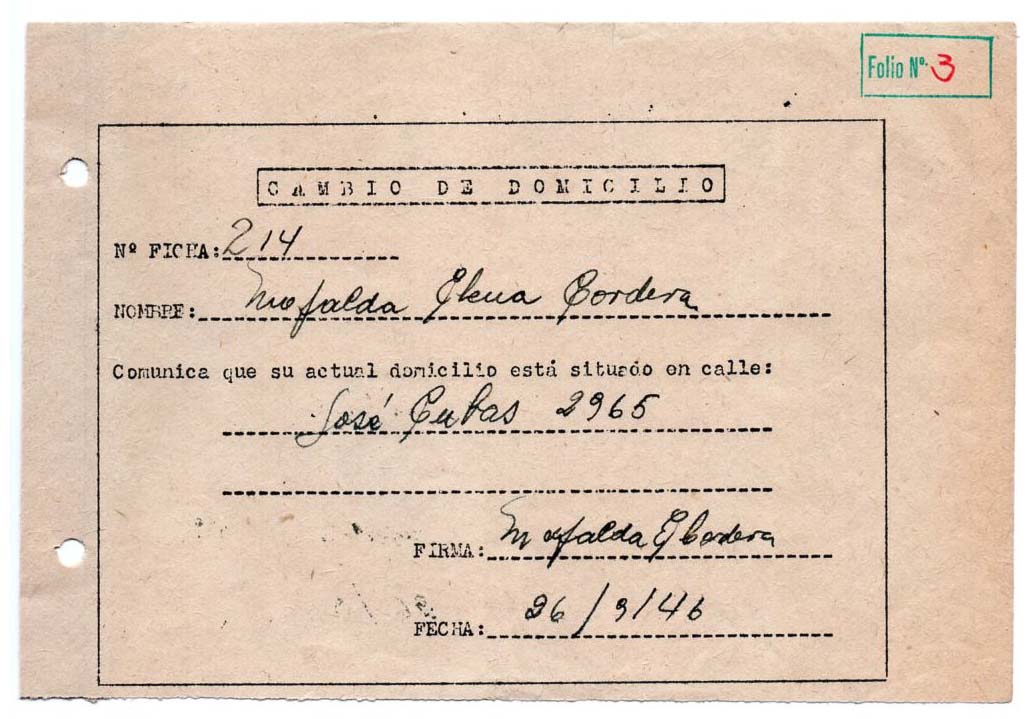 Folio Nº. 3
CAMBIO DE DOMICILIO
Nº FICHA: 214
NOMBRE: Mafalda Elena Cordera
Comunica que su actual domicilio está situado en calle:
José Cubas 2965
FIRMA: Mafalda E Cordera
FECHA: 26/9/46